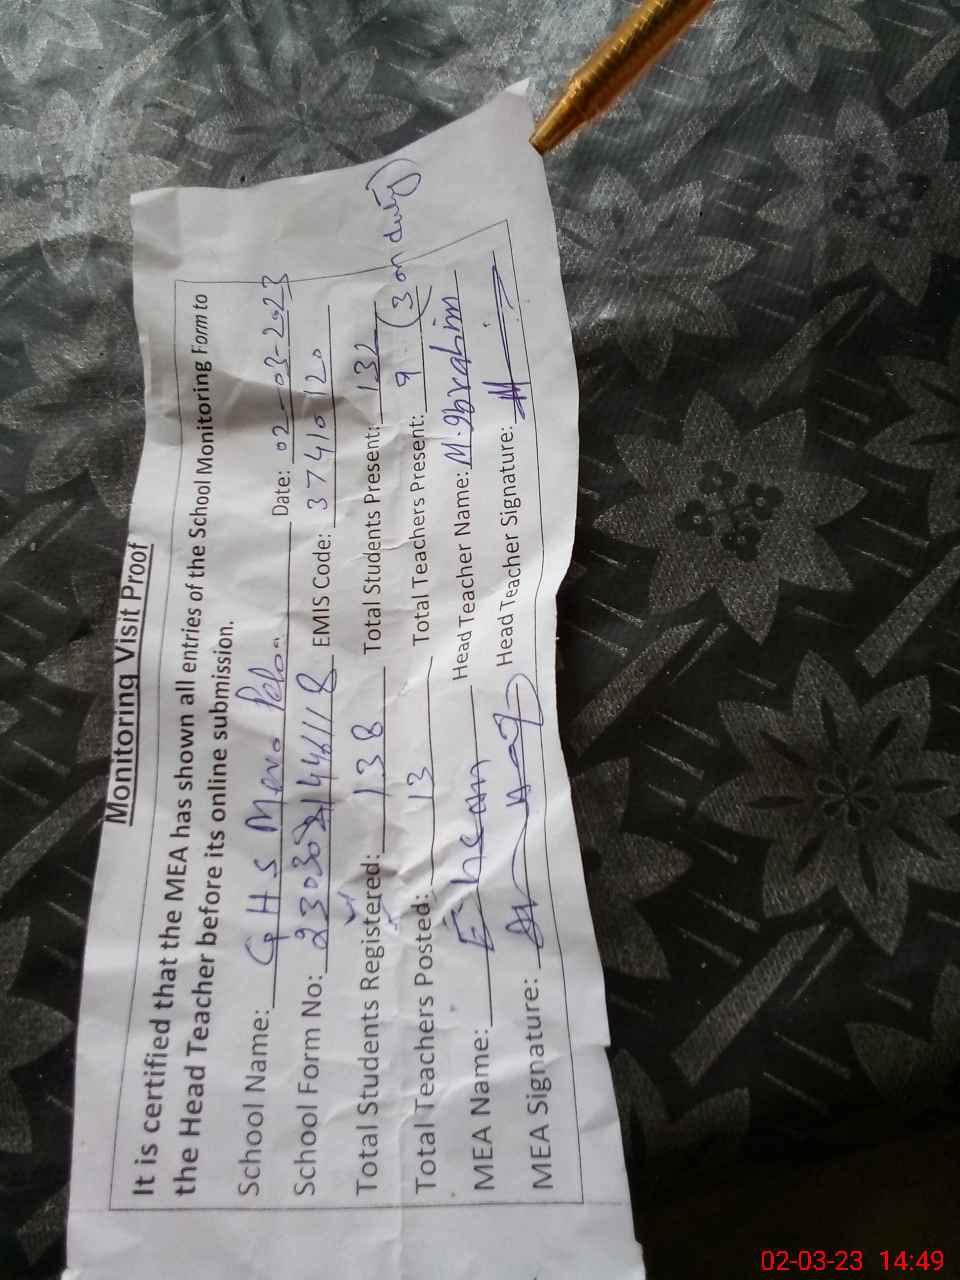 Monitoring Visit Proof
It is certified that the MEA has shown all entries of the School Monitoring Form to
the Head Teacher before its online submission.
School Name: GHS Mano Date: 02-03-2023
School Form No: EMIS Code: 37410120
Total Students Registered: 138 Total Students Present: 132
Total Teachers Posted: 13 Total Teachers Present: 9 (3 on duty)
MEA Name: Ehsan Head Teacher Name: M. Ibrahim
MEA Signature: Head Teacher Signature:
02-03-23 14:49